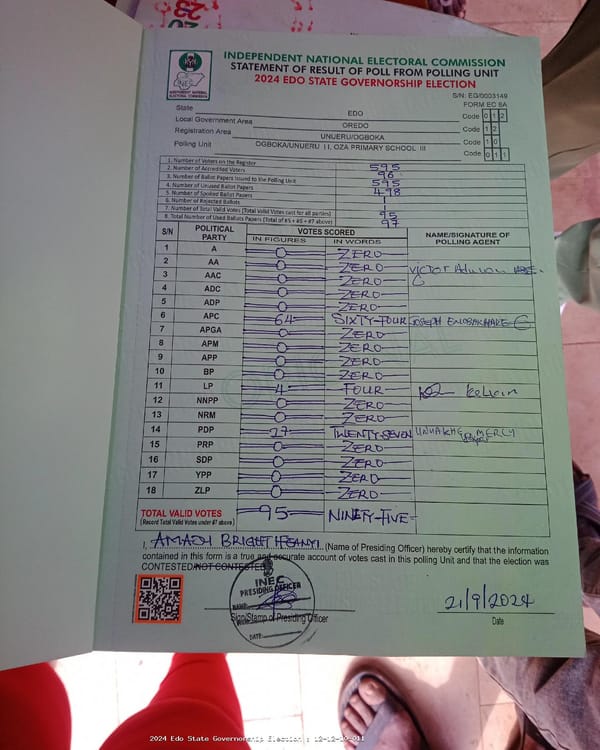 INDEPENDENT NATIONAL ELECTORAL COMMISSION
STATEMENT OF RESULT OF POLL FROM POLLING UNIT
2024 EDO STATE GOVERNORSHIP ELECTION
INEC
INDEPENDENT NATIONAL ELECTORAL COMMISSION
S/N: EG/0003149
FORM EC 8A
State EDO Code 0 1 2
Local Government Area OREDO Code 1 2
Registration Area UNUERU/OGBOKA Code 1 0
Polling Unit OGBOKA/UNUERU 11, OZA PRIMARY SCHOOL III Code 0 1 1
1. Number of Voters on the Register 595
2. Number of Accredited Voters 96
3. Number of Ballot Papers Issued to the Polling Unit 595
4. Number of Unused Ballot Papers 498
5. Number of Spoiled Ballot Papers 1
6. Number of Rejected Ballots 1
7. Number of Total Valid Votes (Total Valid Votes cast for all parties) 95
8. Total Number of Used Ballots Papers (Total of #5 + #6 + #7 above) 97
S/N POLITICAL PARTY VOTES SCORED NAME/SIGNATURE OF POLLING AGENT
IN FIGURES IN WORDS
1 A 0 ZERO
2 AA 0 ZERO
3 AAC 0 ZERO VICTOR
4 ADC 0 ZERO
5 ADP 0 ZERO
6 APC 64 SIXTY-FOUR JOSEPH
7 APGA 0 ZERO
8 APM 0 ZERO
9 APP 0 ZERO
10 BP 0 ZERO
11 LP 4 FOUR
12 NNPP 0 ZERO
13 NRM 0 ZERO
14 PDP 27 TWENTY-SEVEN MERCY
15 PRP 0 ZERO
16 SDP 0 ZERO
17 YPP 0 ZERO
18 ZLP 0 ZERO
TOTAL VALID VOTES 95 NINETY-FIVE
(Record Total Valid Votes under #7 above)
I, AMADI BRIGHT IFEANYI (Name of Presiding Officer) hereby certify that the information
contained in this form is a true and accurate account of votes cast in this polling Unit and that the election was
CONTESTED/NOT CONTESTED
INEC
PRESIDING OFFICER
NAME:
DATE:
Sign/Stamp of Presiding Officer
21/9/2024
Date
2024 Edo State Governorship Election : 12-12-10-011